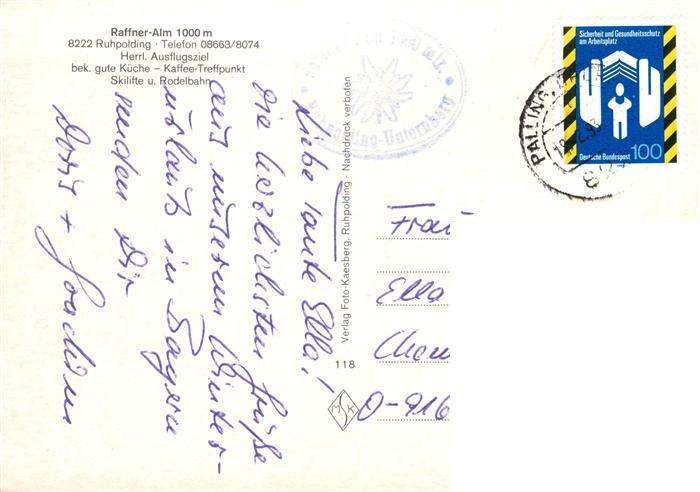 Raffner-Alm 1000 m
8222 Ruhpolding · Telefon 08663/8074
Herrl. Ausflugsziel
bek. gute Küche – Kaffee-Treffpunkt
Skilifte u. Rodelbahn
Liebe Tante Ella!
die herzlichsten Grüße
aus unserem Winter-
urlaub in Bayern
senden Dir
Doris + Joachim
Verlag Foto-Kaesberg, Ruhpolding · Nachdruck verboten
118
M K
Ruhpolding-Unternberg
Sicherheit und Gesundheitsschutz
am Arbeitsplatz
Deutsche Bundespost 100
PALLING
Frau
Ella
O-916